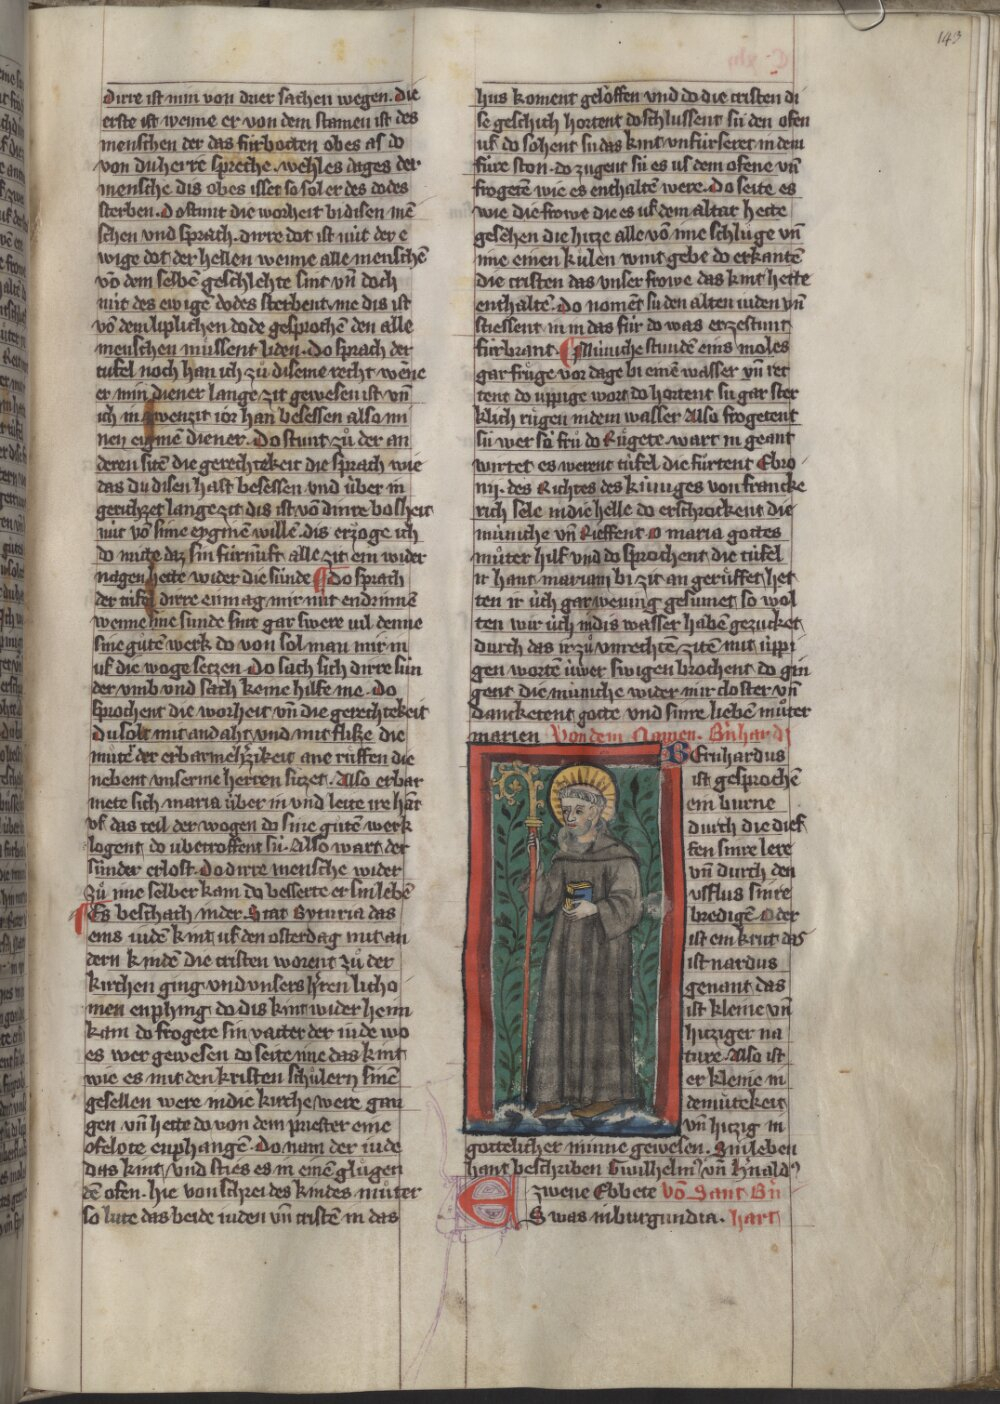 143
dirre ist min von drier sachen wegen. Die
erste ist wenne er von dem stamen ist des
menschen der das fürbotten obes as do
von du herre spreche. wehles dages der
mensche dis obes isset so sol er des dodes
sterben. Do stunt die worheit bi disen mē
schen vnd sprach. dirre dot ist nüt der e
wige dot der hellen wenne alle menschen
vō dem selben geschlehte sint vn̄ doch
nüt des ewigē dodes sterbent. me dis ist
vō dem liplichen dode gesprochē den alle
menschen müssent liden. Do sprach der
tüfel noch han ich zü diseme recht wene
er min diener lange zit gewesen ist vn̄
ich in wenzit ior han besessen also mi
nen eigine diener. Do stunt zů der an
deren sitē die gerechtekeit die sprach wie
das du disen hast besessen vnd über in
gerichzet lange zit dis ist vō dinre bosheit
nüt vō sime eyginē willē. dis erzoge ich
do mitte daz sin fürnuft alle zit ein wider
nagen hette wider die sünde Do sprach
der tüfel dirre enmag mir nüt endrinnē
wenne sine sünde sint gar swere vil denne
sine gütē werk do von sol man mir in
uf die woge setzen. Do sach sich dirre sün
der vmb vnd sach keine hilfe me. Do
sprochent die worheit vn̄ die gerechtekeit
du solt mit andaht vnd mit flisze die
můter der erbarmehrzikeit ane rüffen die
nebent vnserme herren sizzet. Also erbar
mete sich maria über in vnd leite ire hāt
vf das teil der wogen do sine gütē werk
logent do vbetroffent sü. Also wart der
sünder erlost. do dirre mensche wider
zů ime selber kam do besserte er sin lebē
Es beschach in der Stat Byturia das
eins iudē kint uf den osterdag mit an
dern kindē die cristen worent zü der
kirchen ging vnd vnsers hren licho
men enphing do dis kint wider heim
kam do frogete sin vatter der iude wo
es wer gewesen do seite ime das kint
wie es mit den kristen schůlern sinē
gesellen were in die kirche were gan
gen vn̄ hette do von dem priester eine
ofelote enphangē. Do nam der iude
das kint vnd sties es in einē glügen
dē ofen. hie von schrei des kindes můter
so lute das beide iuden vn̄ cristē in das
C xliij
hus koment geloffen vnd do die cristen di
se geschich hortent do schlussent sü den ofen
uf do sohent sü das kint vnfürseret in dem
füre ston. do zugent sü es us dem ofene vn̄
frogetē wie es enthaltē were. Do seite es
wie die frowe die es uf dem altar hette
gesehen die hitze alle vō ime schlüge vn̄
ime einen külen wint gebe do erkantē
die cristen das vnser frowe das kint hette
enthaltē. Do nomēt sü den alten iuden vn̄
stiessent in in das für do was er ze stunt
fürbrant. Müniche stundē eins moles
gar frůge vor dage bi einē wasser vn̄ ret
tent do üppige wort do hortent sü gar ster
klich rügen in dem wasser Also frogetent
sü wer so frü do Růgete. wart in geant
wirtet es werent tüfel die fürtent Ebro
nij. des Richtes des küniges von francke
rich sele in die helle do erschrockent die
müniche vn̄ Rieffent O maria gottes
můter hilf vnd do sprochent die tüfel
ir hant mariam bi zit an gerüffet het
ten ir üch gar wenig gesumet so wol
ten wir üch in dis wasser habē gezucket
durch das ir zů vnrechtē zitē mit üppi
gen wortē üwer swigen brochent do gin
gent die müniche wider in ir closter vn̄
dancketent gotte vnd sinre liebē můter
marien Von dem Namen. Bn̄hardi
Bernhardus
ist gesprochē
ein burne
durch die dief
fen sinre lere
vn̄ durch den
vsflus sinre
bredigē Oder
ist ein krut das
ist nardus
genant das
ist kleine vn̄
hitziger na
ture. Also ist
er kleine in
demütekeit
vn̄ hitzig in
gottelicher minne gewesen. Sin leben
hant beschriben Gwilhelm⁹ vn̄ h'nald⁹
zwene Ebbete vō Sant Bn̄
ES was in burgundia. hart